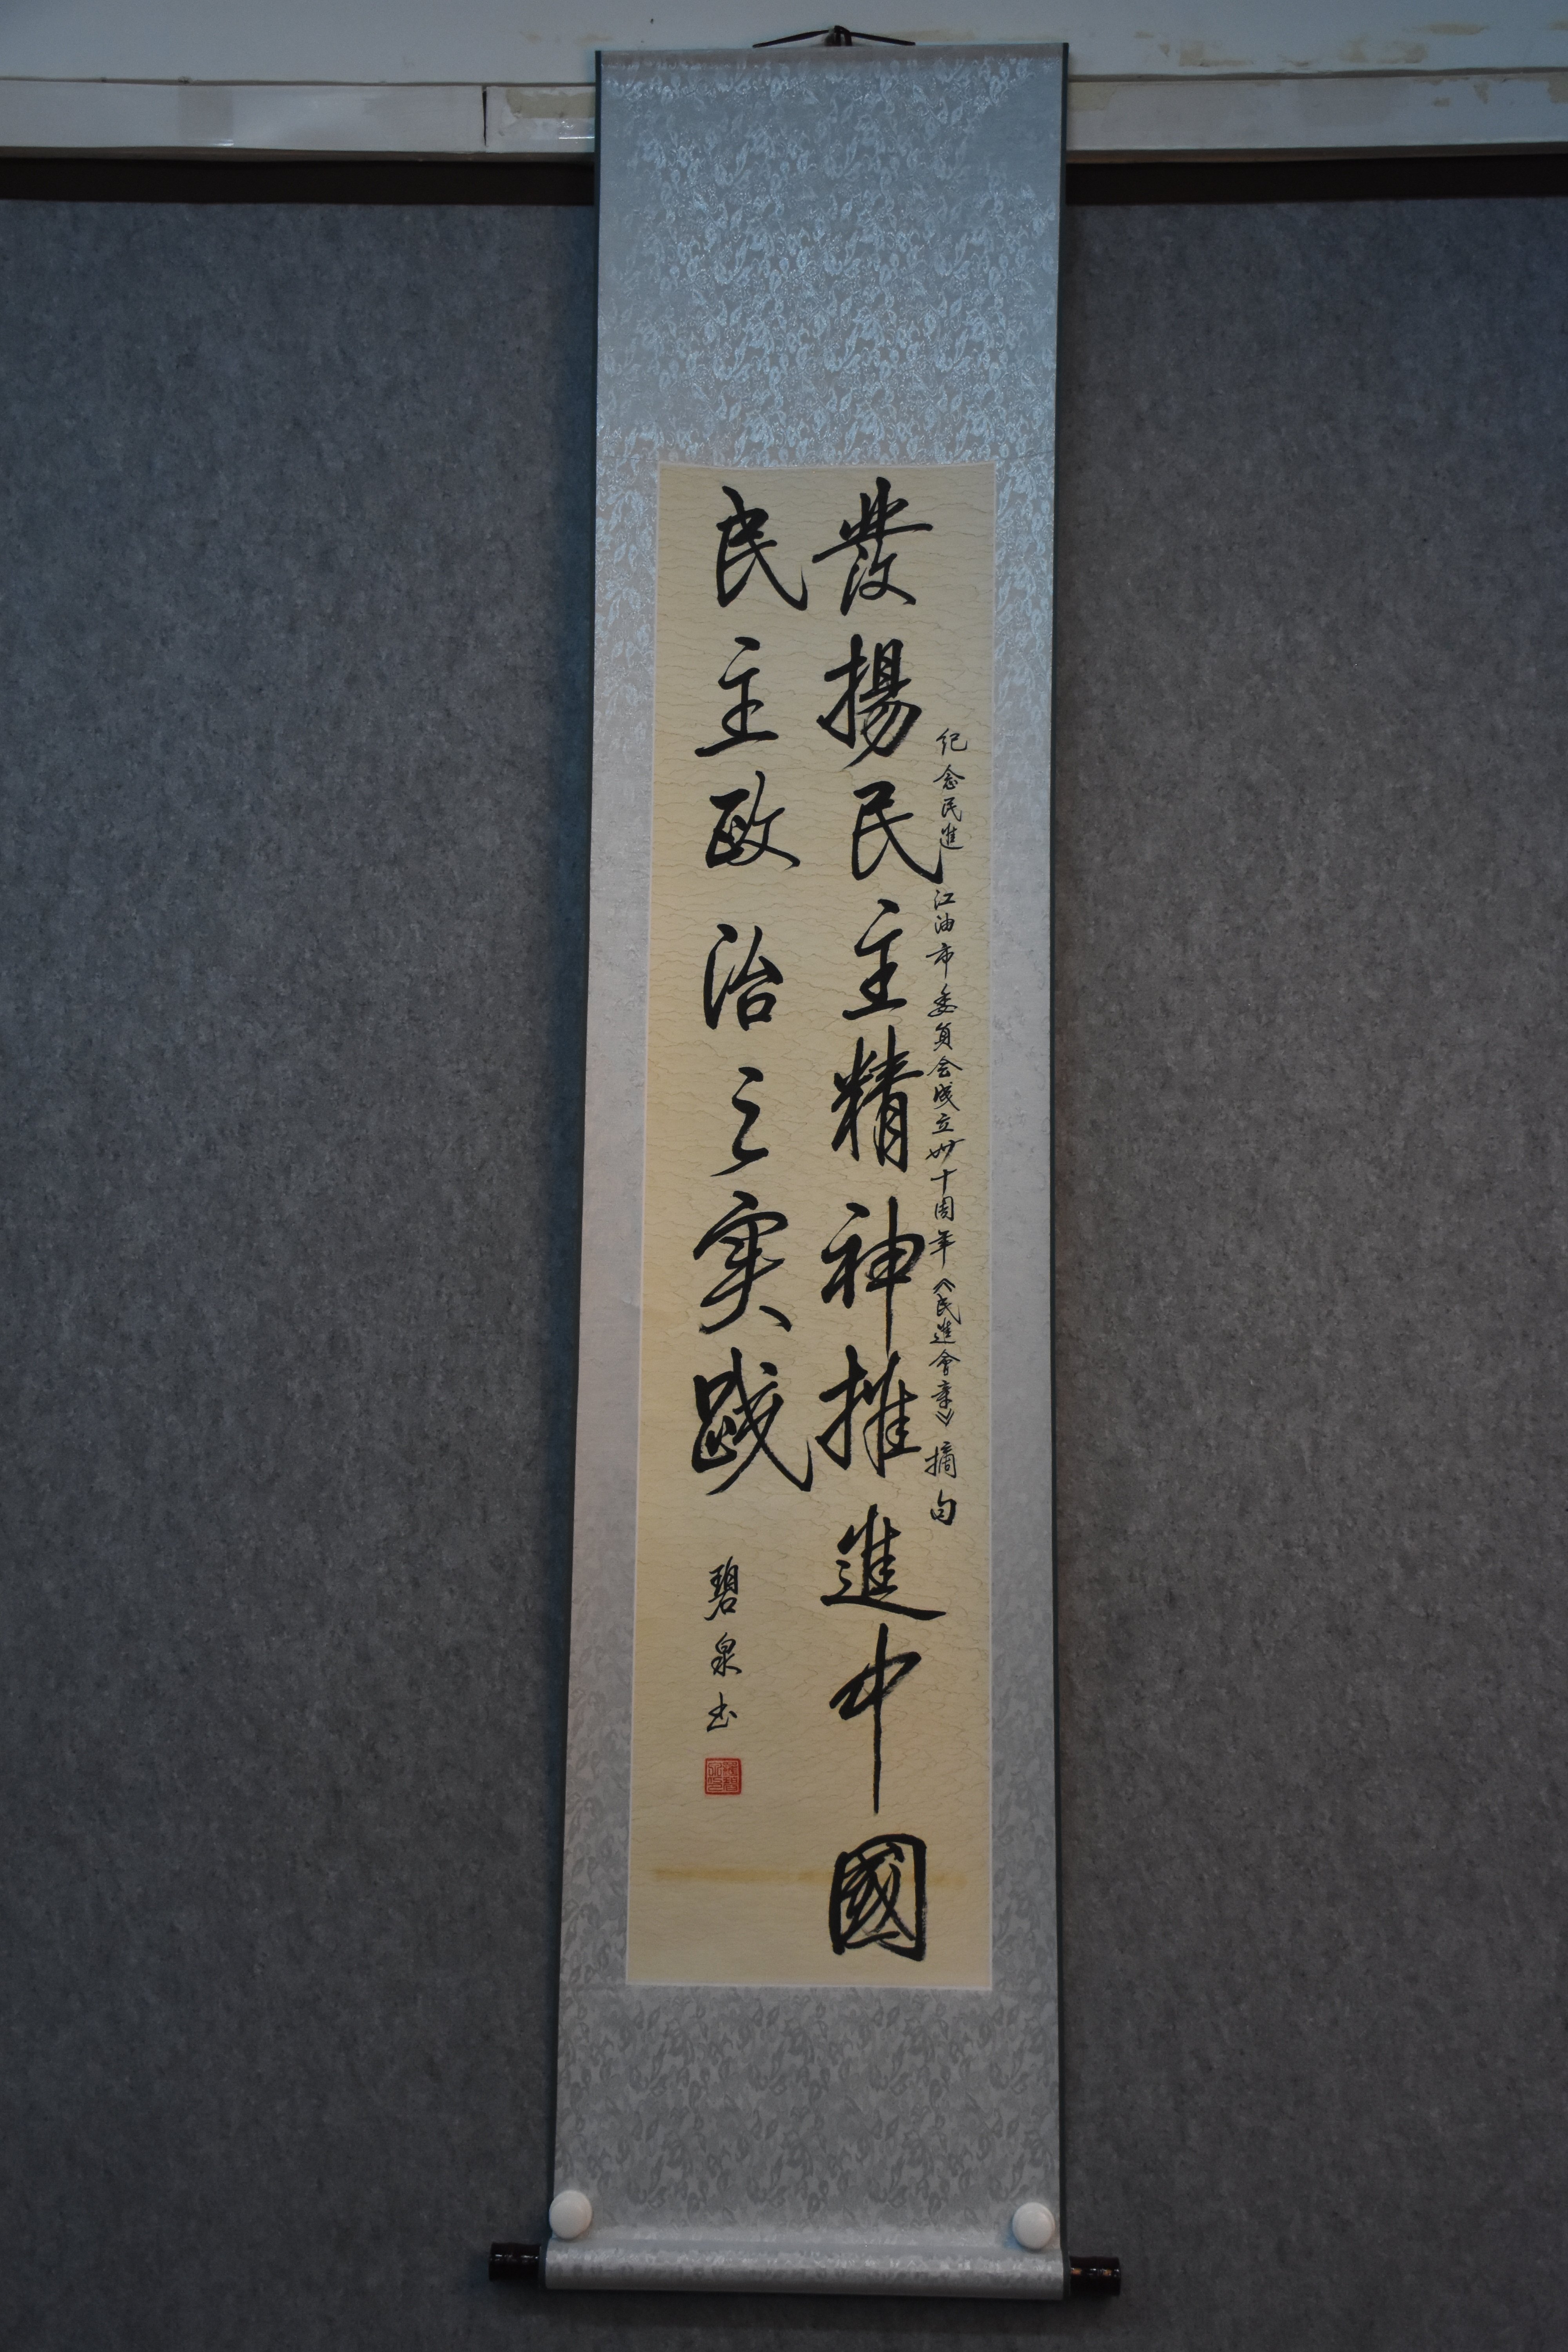 纪念民進江油市委员会成立卅十周年《民進會章》摘句
發揚民主精神推進中國
民主政治之实践
碧泉书